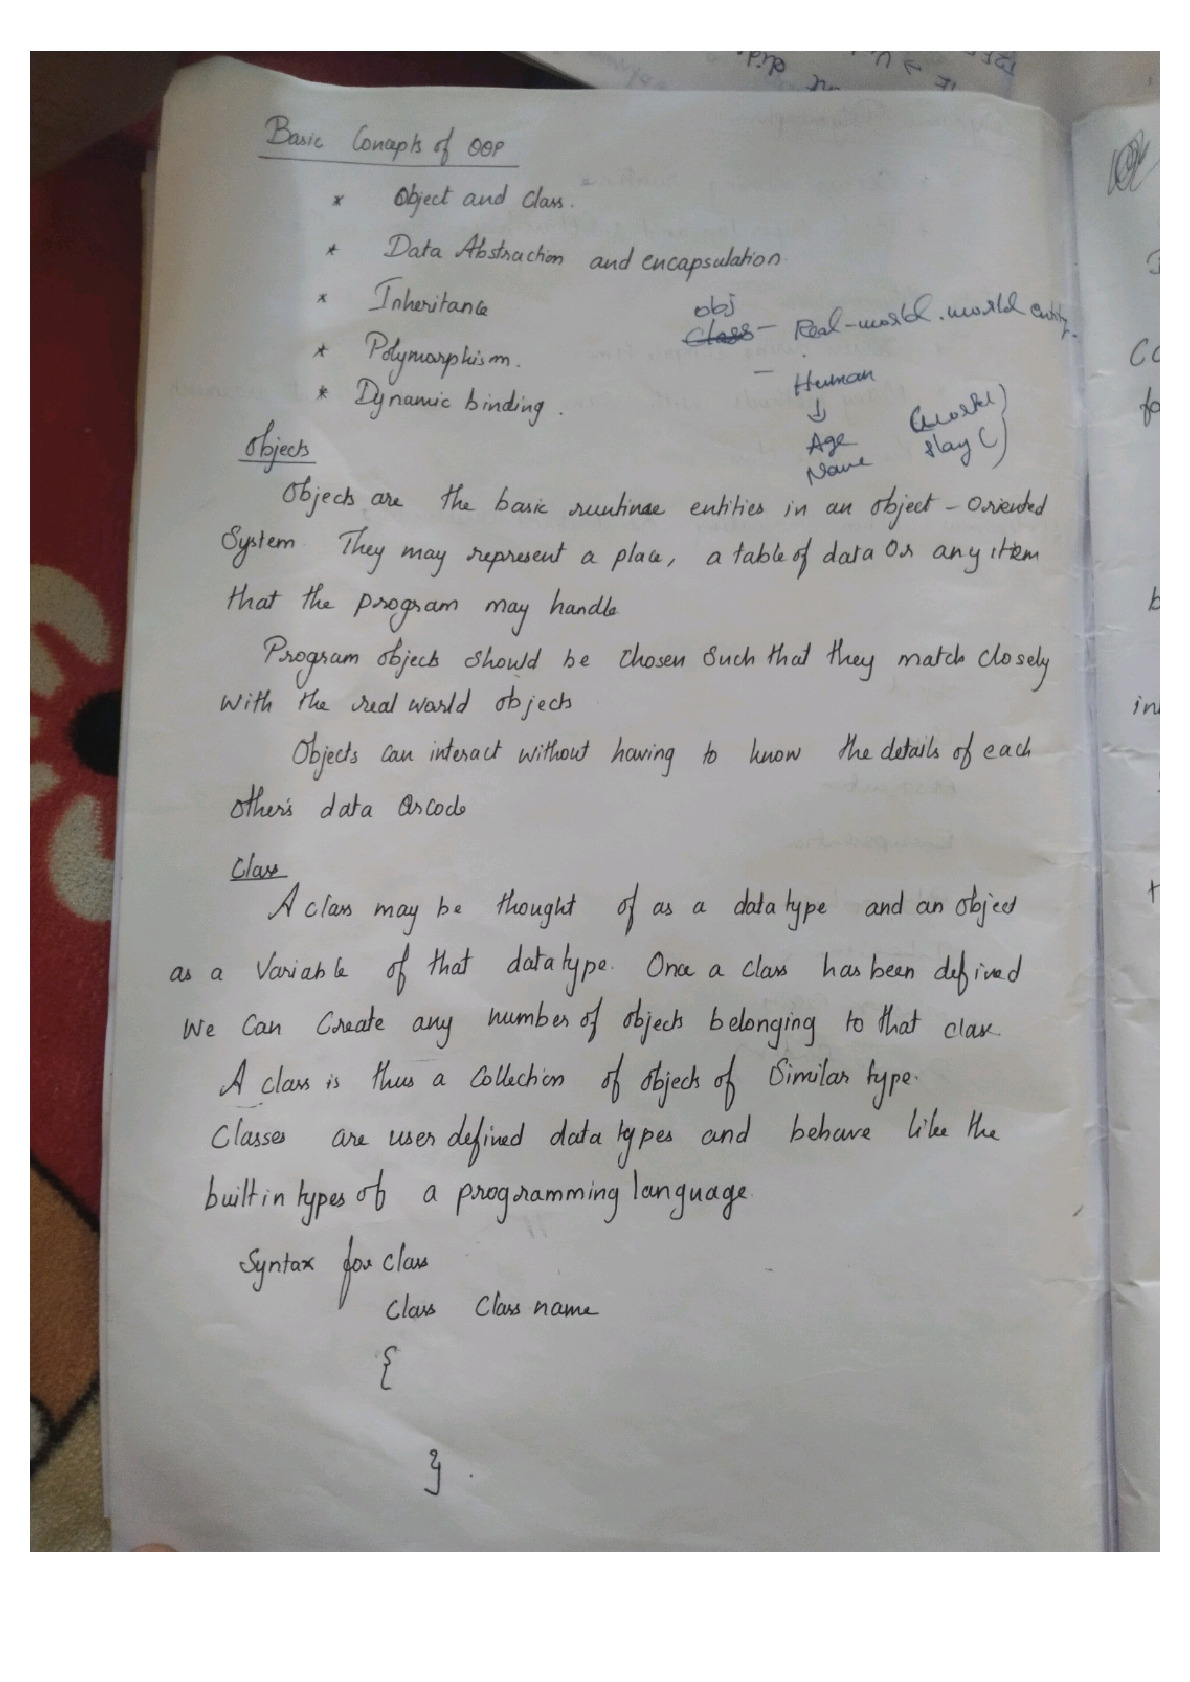 Basic Concepts of OOP
* Object and Class.
* Data Abstraction and encapsulation
* Inheritance
obj
Class - Real-world. world entity.
* Polymorphism.
- Human
* Dynamic binding.
↓
Age
Name
(work)
Objects
Objects are the basic runtime entities in an object - Oriented
System. They may represent a place, a table of data Or any item
that the program may handle
Program objects should be chosen such that they match closely
with the real world objects
Objects can interact without having to know the details of each
other's data Or code
Class
A class may be thought of as a data type and an object
as a Variable of that data type. Once a class has been defined
We Can Create any number of objects belonging to that class
A class is thus a Collection of objects of Similar type.
Classes are user defined data types and behave like the
built in types of a programming language.
Syntax for class
Class Class name
{
}.